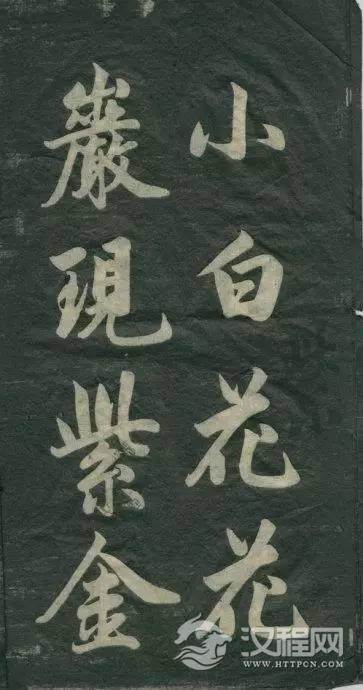 小白花花
巖現紫金
汉程网
WWW.HTTPCN.COM